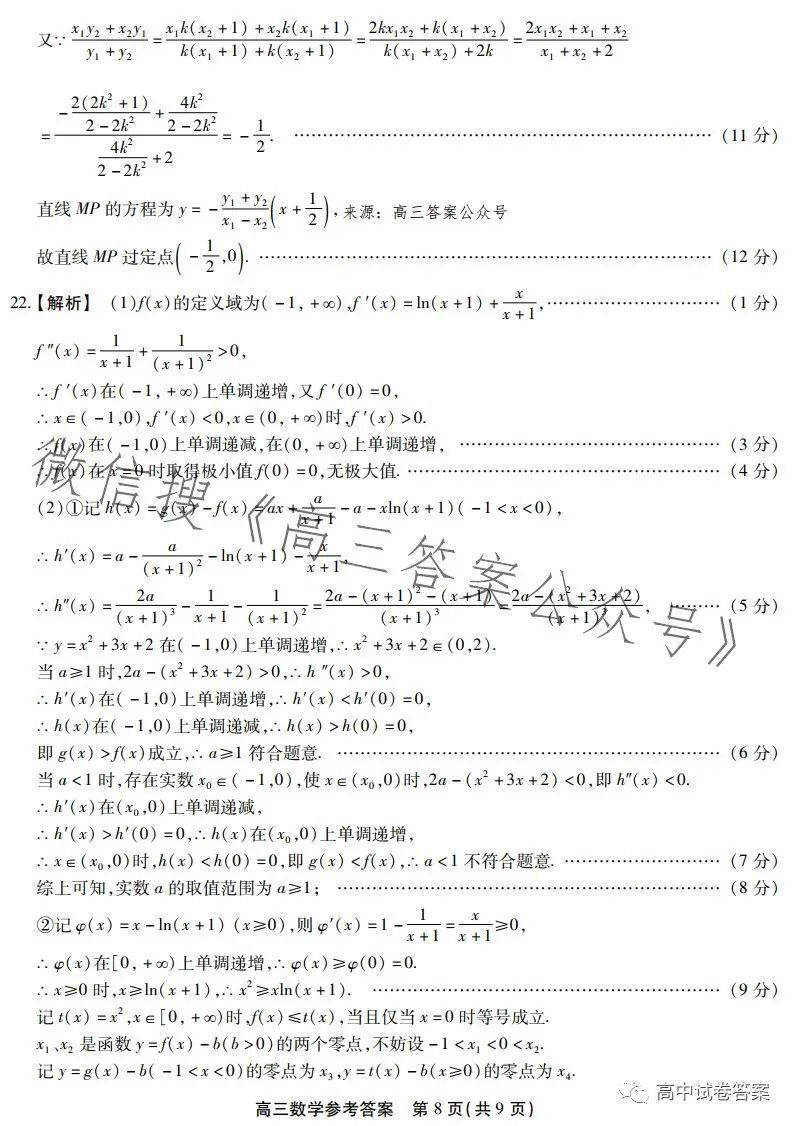 又∵ (x₁y₂+x₂y₁)/(y₁+y₂) = (x₁k(x₂+1)+x₂k(x₁+1))/(k(x₁+1)+k(x₂+1)) = (2kx₁x₂+k(x₁+x₂))/(k(x₁+x₂)+2k) = (2x₁x₂+x₁+x₂)/(x₁+x₂+2)
= (-2(2k²+1)/(2-2k²) + 4k²/(2-2k²))/(4k²/(2-2k²)+2) = -1/2. …… (11 分)
直线 MP 的方程为 y = -(y₁+y₂)/(x₁-x₂)(x+1/2), 来源：高三答案公众号
故直线 MP 过定点(-1/2,0). …… (12 分)
22.【解析】 (1)f(x)的定义域为(-1,+∞),f′(x)=ln(x+1)+x/(x+1), …… (1 分)
f″(x)=1/(x+1)+1/(x+1)²>0,
∴f′(x)在(-1,+∞)上单调递增,又f′(0)=0,
∴x∈(-1,0),f′(x)<0,x∈(0,+∞)时,f′(x)>0.
∴f(x)在(-1,0)上单调递减,在(0,+∞)上单调递增, …… (3 分)
∴f(x)在x=0时取得极小值f(0)=0,无极大值. …… (4 分)
(2)①记h(x)=g(x)-f(x)=ax+a/(x+1)-a-xln(x+1)(-1<x<0),
∴h′(x)=a-a/(x+1)²-ln(x+1)-x/(x+1),
∴h″(x)=2a/(x+1)³-1/(x+1)-1/(x+1)²=(2a-(x+1)²-(x+1))/(x+1)³=(2a-(x²+3x+2))/(x+1)³, …… (5 分)
∵y=x²+3x+2在(-1,0)上单调递增,∴x²+3x+2∈(0,2).
当a≥1时,2a-(x²+3x+2)>0,∴h″(x)>0,
∴h′(x)在(-1,0)上单调递增,∴h′(x)<h′(0)=0,
∴h(x)在(-1,0)上单调递减,∴h(x)>h(0)=0,
即g(x)>f(x)成立,∴a≥1符合题意. …… (6 分)
当a<1时,存在实数x₀∈(-1,0),使x∈(x₀,0)时,2a-(x²+3x+2)<0,即h″(x)<0.
∴h′(x)在(x₀,0)上单调递减,
∴h′(x)>h′(0)=0,∴h(x)在(x₀,0)上单调递增,
∴x∈(x₀,0)时,h(x)<h(0)=0,即g(x)<f(x),∴a<1不符合题意. …… (7 分)
综上可知,实数a的取值范围为a≥1; …… (8 分)
②记φ(x)=x-ln(x+1) (x≥0),则φ′(x)=1-1/(x+1)=x/(x+1)≥0,
∴φ(x)在[0,+∞)上单调递增,∴φ(x)≥φ(0)=0.
∴x≥0时,x≥ln(x+1),∴x²≥xln(x+1). …… (9 分)
记t(x)=x²,x∈[0,+∞)时,f(x)≤t(x),当且仅当x=0时等号成立.
x₁、x₂是函数y=f(x)-b(b>0)的两个零点,不妨设-1<x₁<0<x₂.
记y=g(x)-b(-1<x<0)的零点为x₃,y=t(x)-b(x≥0)的零点为x₄.
微信搜《高三答案公众号》
高中试卷答案
高三数学参考答案 第 8 页(共 9 页)